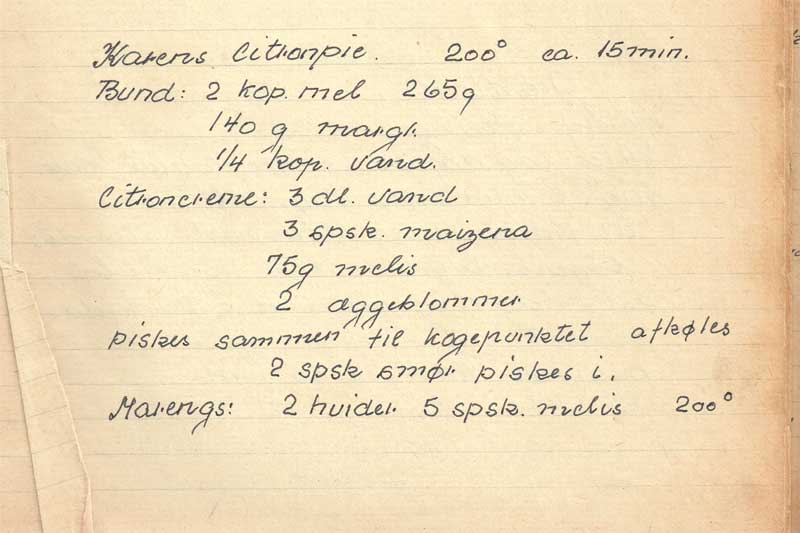 Karens Citronpie. 200° ca. 15 min.
Bund: 2 kop. mel 265g
140 g margr.
1/4 kop. vand.
Citroncreme: 3 dl. vand
3 spsk. maizena
75g melis
2 æggeblommer
piskes sammen til kogepunktet afkøles
2 spsk smør piskes i.
Marengs: 2 hvider 5 spsk. melis 200°